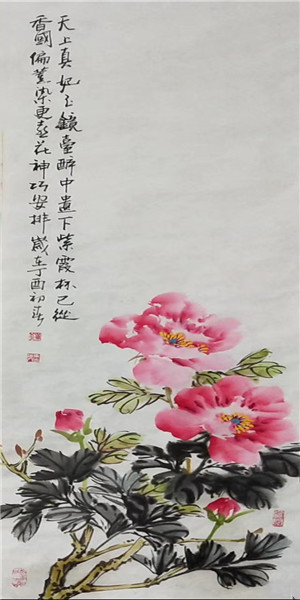 天上真妃玉鏡臺醉中遺下紫霞杯已從
香國偏薰染更惹花神巧安排歲在丁酉初